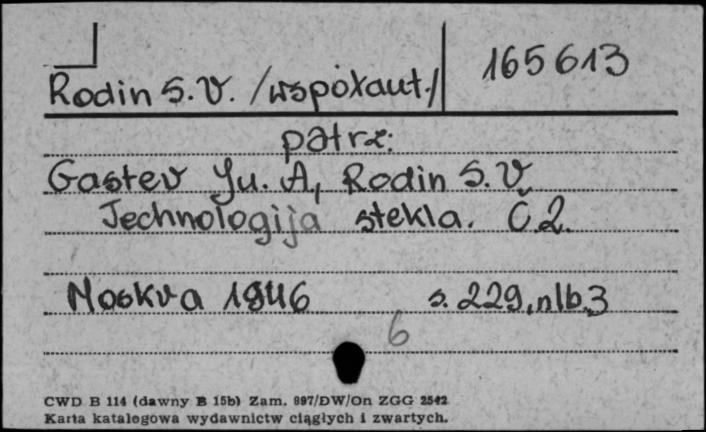 Rodin S.V. /współaut./ 165613
patrz:
Gastev Ju. A., Rodin S.V.
Technologija stekla. Č.2.
Moskva 1946 s. 229, nlb.3
6
CWD B 114 (dawny B 15b) Zam. 997/DW/On ZGG 2542
Karta katalogowa wydawnictw ciągłych i zwartych.